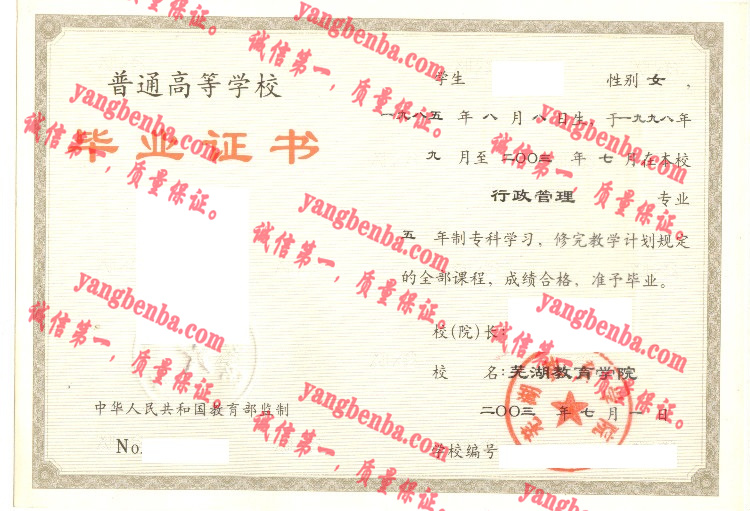 普通高等学校
毕业证书
中华人民共和国教育部监制
No.
学生 性别 女 ,
一九八五 年 八 月 八 日生, 于 一九九八 年
九 月至 二〇〇三 年 七 月在本校
行政管理 专业
五 年制专科学习, 修完教学计划规定
的全部课程, 成绩合格, 准予毕业。
校(院)长:
校 名: 芜湖教育学院
二〇〇三 年 七 月 一 日
学校编号
yangbenba.com
诚信第一, 质量保证。
yangbenba.com
诚信第一, 质量保证。
yangbenba.com
诚信第一, 质量保证。
yangbenba.com
诚信第一, 质量保证。
yangbenba.com
诚信第一, 质量保证。
yangbenba.com
诚信第一, 质量保证。
yangbenba.com
诚信第一, 质量保证。